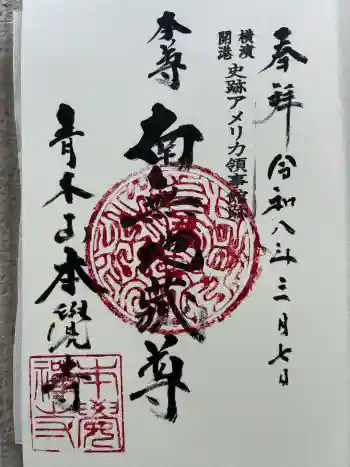 奉拝 令和八年三月七日
横濱
開港
史跡アメリカ領事館跡
本尊
南無地蔵尊
青木山本覺寺
本覺
禅寺